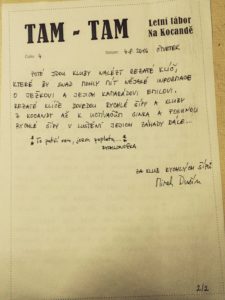 TAM - TAM
Letní tábor
Na Kocandě
Číslo: 4
Datum: 4.8.2016 ČTVRTEK
POTÉ JDOU KLUBY NALÉZT REZATÉ KLÍČ,
KTERÉ BY SNAD MOHLY MÍT NĚJAKÉ INFORMACE
O JEŽKOVI A JEJICH KAMARÁDOVI EMILOVI.
REZATÉ KLÍČE DOVEDOU RYCHLÉ ŠÍPY A KLUBY
Z KOCANDY AŽ K
RYCHLÉ ŠÍPY V LUŠTĚNÍ JEJICH ZÁHADY DÁLE...
To patří nám, jsem
RYCHLONOŽKA
ZA KLUB RYCHLÝCH ŠÍPŮ
Mirek Dušín
2/2